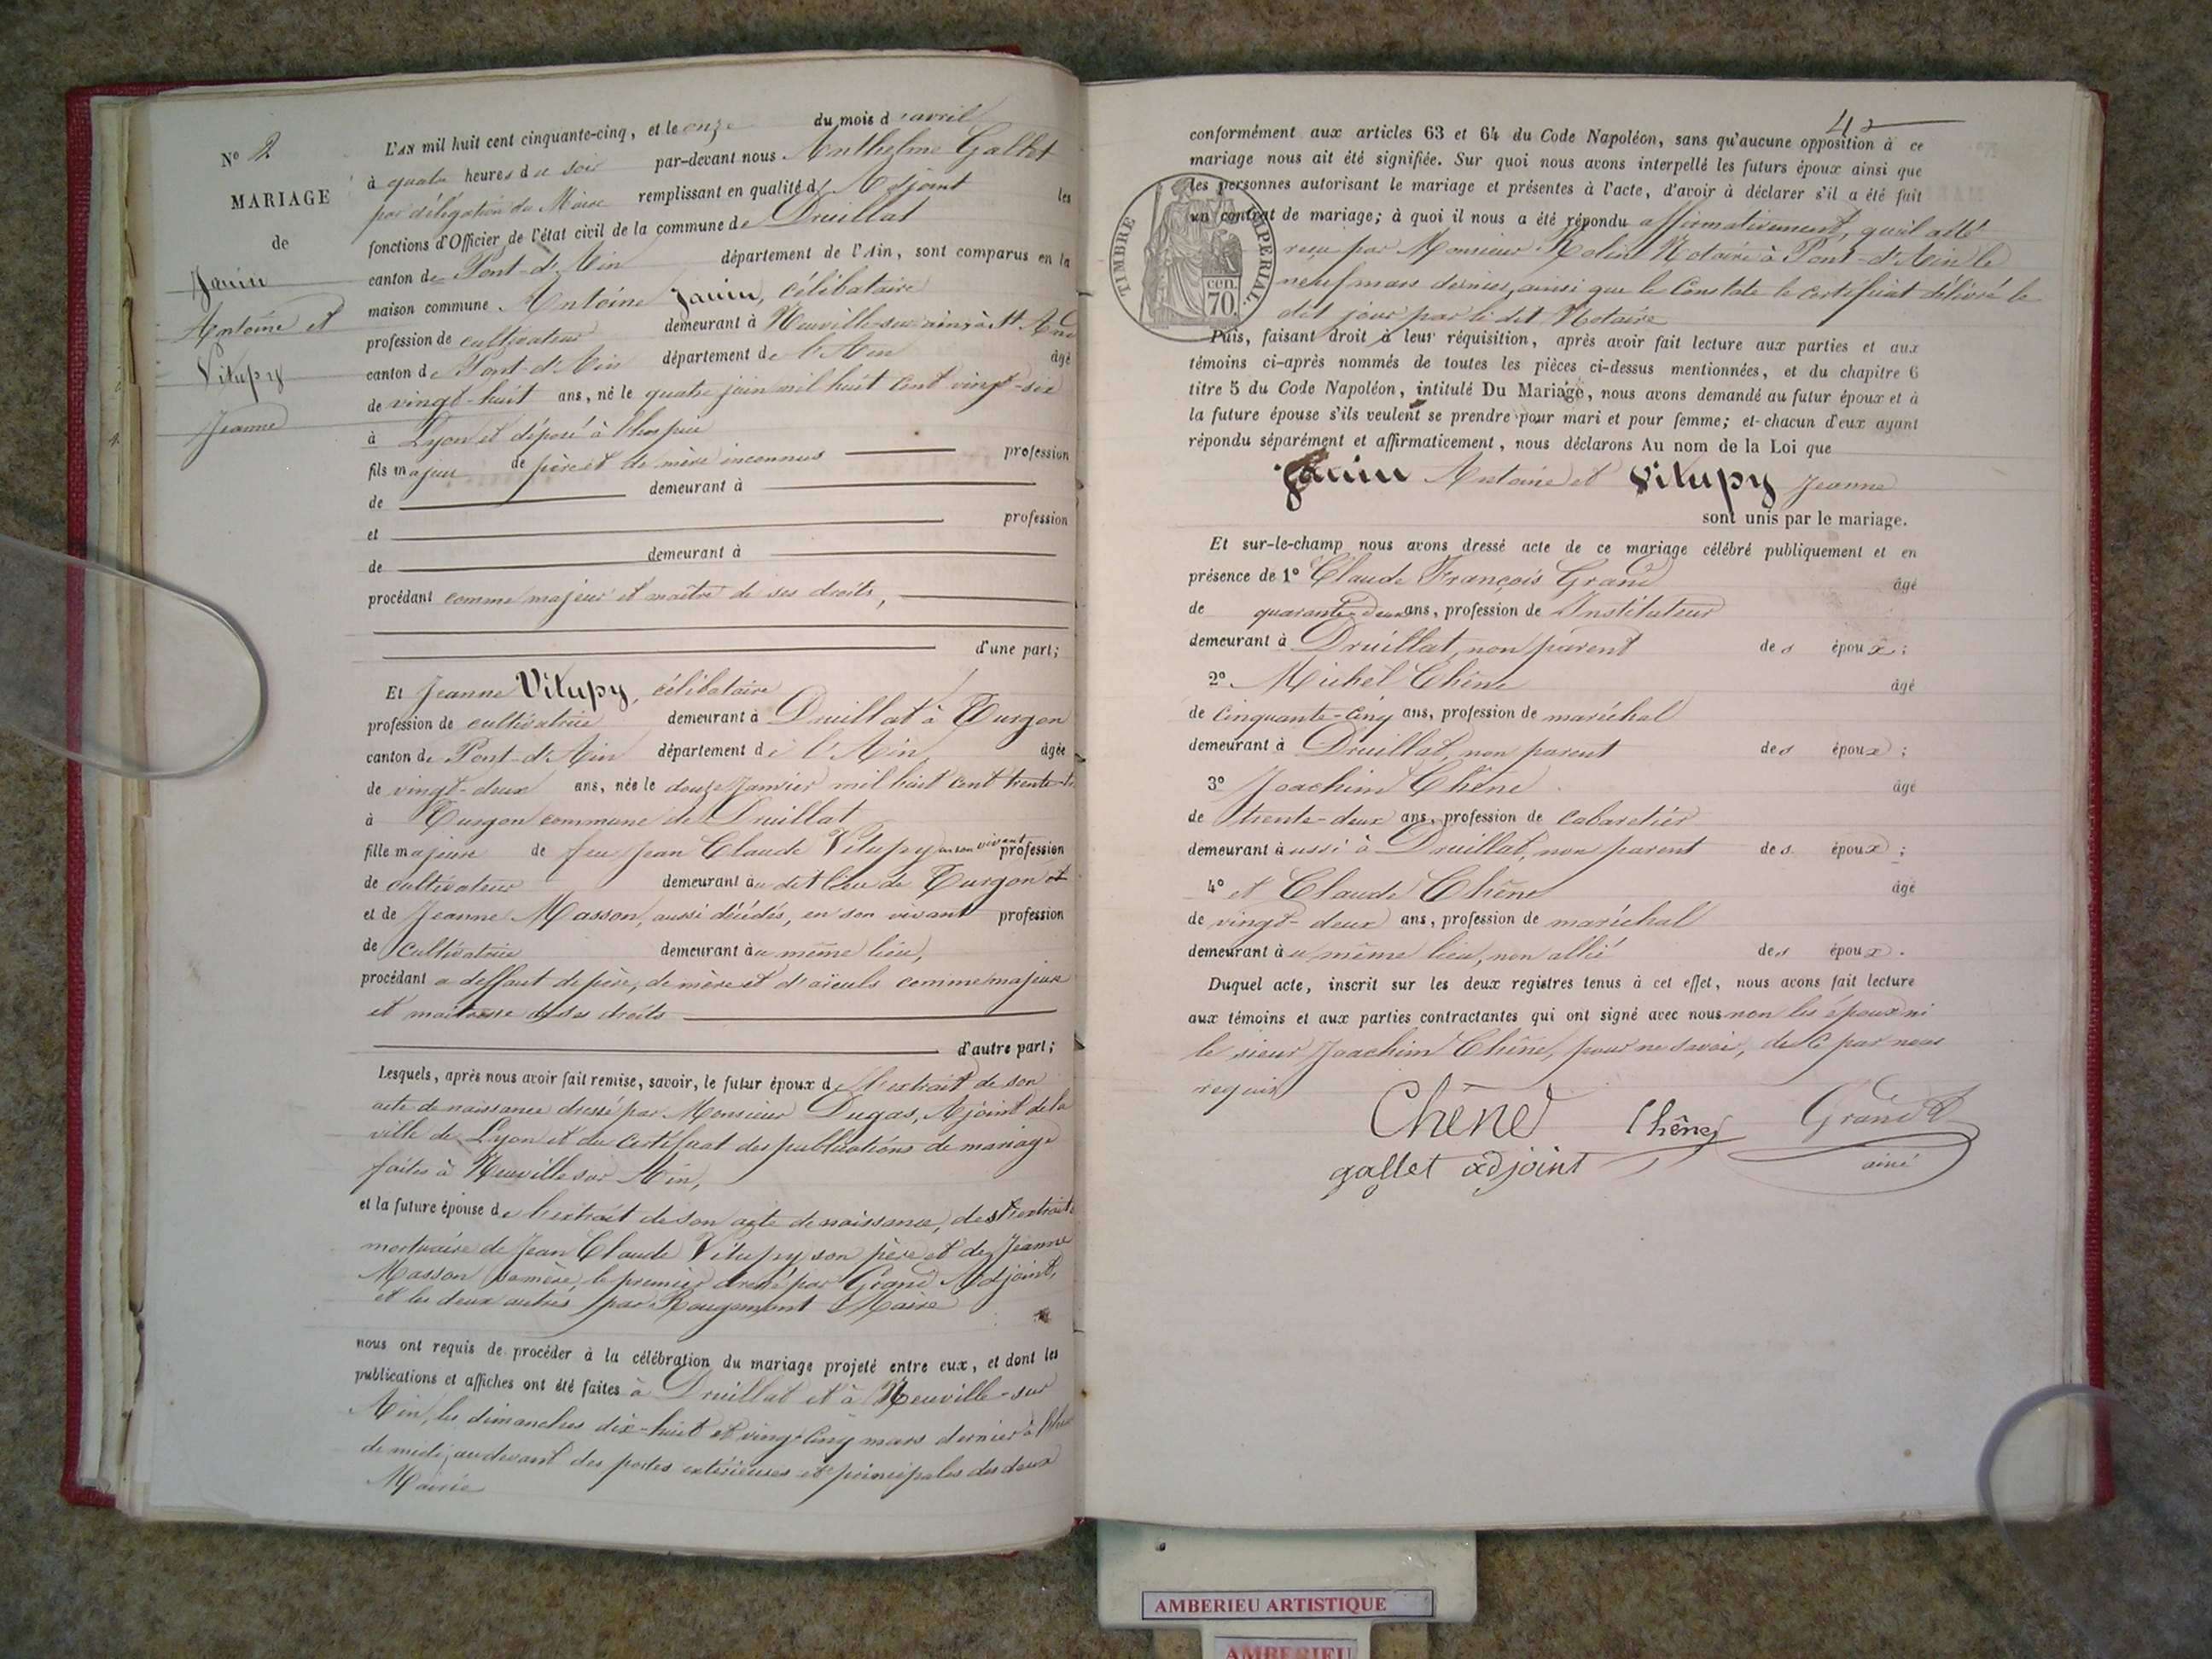 Nº 2
MARIAGE
de
Janin
Antoine et
Vitupy
Jeanne
L'AN mil huit cent cinquante-cinq, et le onze du mois d'avril
à quatre heures du soir par-devant nous Anthelme Gallet
par délégation du Maire remplissant en qualité d'Adjoint les
fonctions d'Officier de l'état civil de la commune de Druillat
canton de Pont-d'Ain département de l'Ain, sont comparus en la
maison commune Antoine Janin, célibataire
profession de cultivateur demeurant à Neuville-sur-ain, à St And
canton de Pont-d'Ain département de l'Ain âgé
de vingt-huit ans, né le quatre juin mil huit cent vingt-six
à Lyon et déposé à l'hospice
fils majeur de père et de mère inconnus profession
de demeurant à
et profession
de demeurant à
procédant comme majeur et maître de ses droits,
d'une part;
Et Jeanne Vitupy, célibataire
profession de cultivatrice demeurant à Druillat à Turgon
canton de Pont-d'Ain département de l'Ain, âgée
de vingt-deux ans, née le douze Janvier mil huit cent trente-
à Turgon commune de Druillat
fille majeure de feu Jean Claude Vitupy en son vivant profession
de cultivateur demeurant au dit lieu de Turgon et
et de Jeanne Masson, aussi décédés, en son vivant profession
de cultivatrice demeurant au même lieu,
procédant a deffaut de père, de mère et d'aïeuls comme majeur
et maîtresse de ses droits
d'autre part;
Lesquels, après nous avoir fait remise, savoir, le futur époux de l'extrait de son
acte de naissance dressé par Monsieur Dugas, Ajoint de la
ville de Lyon et du certificat des publications de mariage
faites à Neuville sur Ain,
et la future épouse de l'extrait de son acte de naissance, des extraits
mortuaire de Jean Claude Vitupy son père et de Jeanne
Masson sa mère, le premier dressé par Grand Adjoint,
et les deux autres par Rougemont Maire
nous ont requis de procéder à la célébration du mariage projeté entre eux, et dont les
publications et affiches ont été faites à Druillat et à Neuville-sur
Ain, les dimanches dix-huit et vingt-cinq mars dernier à l'heure
de midi, au devant des portes extérieures et principales des deux
Mairie
42
conformément aux articles 63 et 64 du Code Napoléon, sans qu'aucune opposition à ce
mariage nous ait été signifiée. Sur quoi nous avons interpellé les futurs époux ainsi que
les personnes autorisant le mariage et présentes à l'acte, d'avoir à déclarer s'il a été fait
un contrat de mariage; à quoi il nous a été répondu affirmativement, qu'il a été
reçu par Monsieur Rolin Notaire à Pont-d'Ain le
neuf mars dernier, ainsi que le Constate le certificat délivré le
dit jour par le dit Notaire
TIMBRE IMPERIAL.
70 cen.
Puis, faisant droit à leur réquisition, après avoir fait lecture aux parties et aux
témoins ci-après nommés de toutes les pièces ci-dessus mentionnées, et du chapitre 6
titre 5 du Code Napoléon, intitulé Du Mariage, nous avons demandé au futur époux et à
la future épouse s'ils veulent se prendre pour mari et pour femme; et chacun d'eux ayant
répondu séparément et affirmativement, nous déclarons Au nom de la Loi que
Janin Antoine et Vitupy Jeanne
sont unis par le mariage.
Et sur-le-champ nous avons dressé acte de ce mariage célébré publiquement et en
présence de 1º Claude François Grand âgé
de quarante-deux ans, profession de Instituteur
demeurant à Druillat, non parent des époux;
2º Michel Chêne âgé
de cinquante-cinq ans, profession de maréchal
demeurant à Druillat, non parent des époux;
3º Joachim Chêne âgé
de trente-deux ans, profession de cabaretier
demeurant aussi à Druillat, non parent des époux;
4º et Claude Chêne âgé
de vingt-deux ans, profession de maréchal
demeurant au même lieu, non allié des époux.
Duquel acte, inscrit sur les deux registres tenus à cet effet, nous avons fait lecture
aux témoins et aux parties contractantes qui ont signé avec nous non les époux ni
le sieur Joachim Chêne, pour ne savoir, de ce par nous
requis
Chêne Chêne Grand
gallet adjoint ainé
AMBERIEU ARTISTIQUE
AMBERIEU